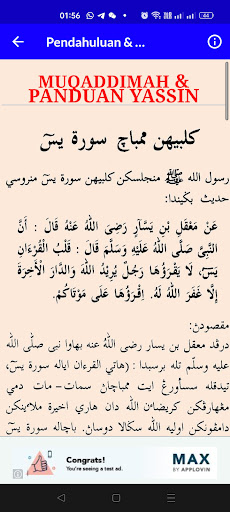 01:56
44
Pendahuluan & ...
MUQADDIMAH &
PANDUAN YASSIN
كلبيهن ممباچ سورة يسٓ
رسول الله ﷺ منجلسكن كلبيهن سورة يسٓ منروسي
حديث بڬيندا:
عَنْ مَعْقِلِ بْنِ يَسَآرٍ رَضِىَ اللّٰهُ عَنْهُ قَالَ : أَنَّ
النَّبِىَّ صَلَّى اللّٰهُ عَلَيْهِ وَسَلَّمَ قَالَ : قَلْبُ الْقُرْءَانِ
يٰسٓ، لَا يَقْرَؤُهَا رَجُلٌ يُرِيْدُ اللّٰهَ وَالدَّارَ الْأٰخِرَةَ
إِلَّا غَفَرَ اللّٰهُ لَهُ. إِقْرَؤُهَا عَلَى مَوْتَاكُمْ.
مقصودڽ:
درڤد معقل بن يسار رضى اللّٰه عنه بهاوا نبى صلّى اللّٰه
عليه وسلّم تله برسبدا : (هاتي القرءان اياله سورة يسٓ،
تيدقله سسأورڠ ايت ممباچاڽ سمات- مات دمي
مڠهارڤكن كريضاءن اللّٰه دان هاري اخيرة ملاءينكن
دامڤونكن اوليه اللّٰه سݢالا دوساڽ. باچاله سورة يسٓ
Congrats!
You're seeing a test ad.
MAX
BY APPLOVIN